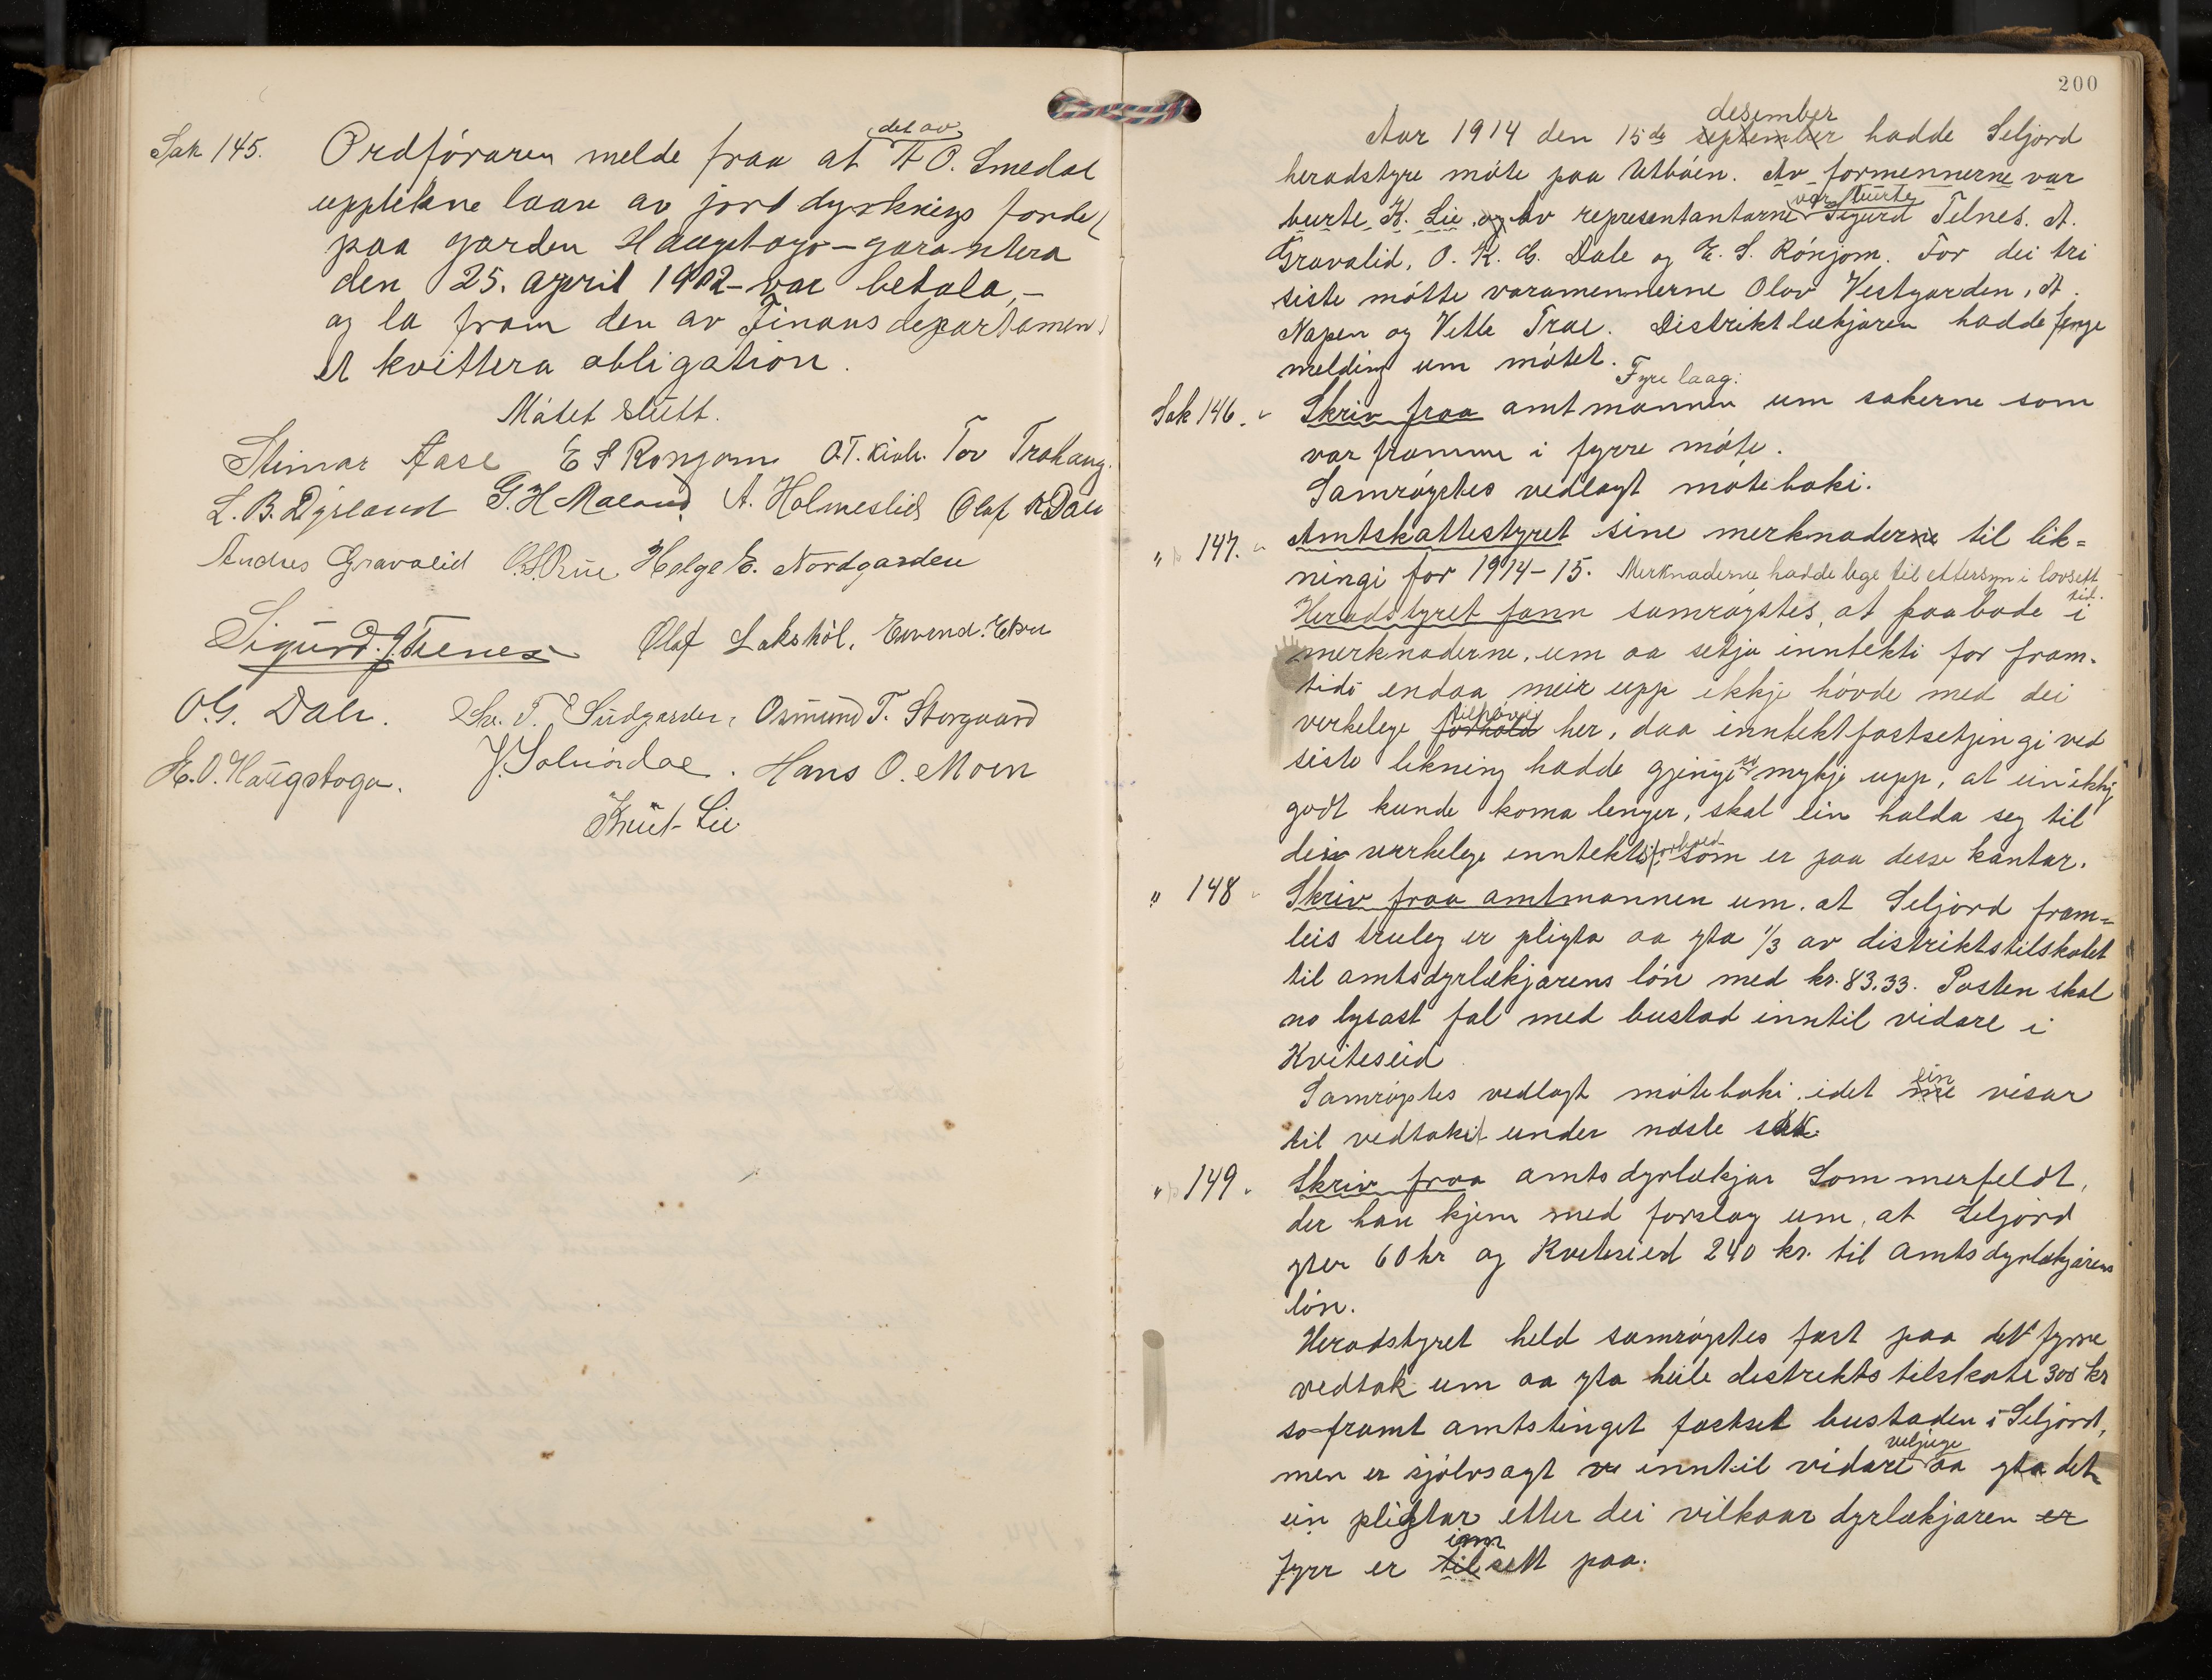 Sak 145. Ordføraren melde fraa at det av A O. Smedal
upptekne laan av jorddyrkningsfondet
paa garden Haugstoga - garantera
den 25. april 1902 - var betala, -
og la fram den av Finansdepartamen-
et kvittera obligation.
Møtet slutt.
Steinar Aase E S Rønjom O.T. Kivle. Tov Trohaug.
L. B. Dyrland G. H Maland. A. Holmeslid Olaf K Dale
Andres Gravalid O. S. Rue Helge E. Nordgarden
Sigurd. J. Telnes Olaf Lakshøl, Eivind.
O. G. Dale. Sv. T. Sudgarden, Osmund T. Storgaard
E. O. Haugstoga. J. Solverdal. Hans O. Moen
Knut Lie
200
Aar 1914 den 15de september desember hadde Seljord
heradstyre møte paa Utbøen. Av formennerne var
burte K. Lie og Av representantarne var burte Sigurd Telnes. A.
Gravalid, O. K. G. Dale og E. S. Rønjom. For dei tri
siste møtte varamennerne Olav Vestgarden, A.
Napen og Vetle Trae. Distriktlækjaren hadde fenge
melding um møtet.
Fyre laag:
Sak 146. Skriv fraa amtmannen um sakerne som
var framme i fyrre møte.
Samrøystes vedlagt møteboki.
" 147. Amtskattestyret sine merknaderne til lik=
ningi for 1914-15. Merknaderne hadde lege til ettersyn i lovsett tid.
Heradstyret fann samrøystes, at paabode i
merknaderne, um aa setja inntekti for fram-
tidi endaa meir upp ikkje høvde med dei
verkelege forhold tilhøvi her, daa inntektfastsetjingi ved
siste likning hadde gjenge so mykje upp, at ein ikkj
godt kunde koma lenger, skal ein halda seg til
dei verkelege inntektsforhold som er paa desse kantar.
" 148 Skriv fraa amtmannen um, at Seljord fram=
leis truleg er pligta aa yta 1/3 av distriktstilskotet
til amtsdyrlækjarens løn med kr. 83.33. Posten skal
no lysast fal med bustad inntil vidare i
Kviteseid
Samrøystes vedlagt møteboki, idet me ein visar
til vedtaket under næste sak.
" 149. Skriv fraa amtsdyrlækjar Sommerfeldt,
der han kjem med forslag um, at Seljord
yter 60 kr og Kviteseid 240 kr. til amtsdyrlækjarens
løn.
Heradstyret held samrøystes fast paa det fyrre
vedtak um aa yta heile distriktstilskote 300 kr
so framt amtstinget fastset bustaden i Seljord,
men er sjølvsagt inntil vidare veljuge aa yta det
ein pligtar etter dei vilkaar dyrlækjaren er
fyrr er tilsett innsett paa.